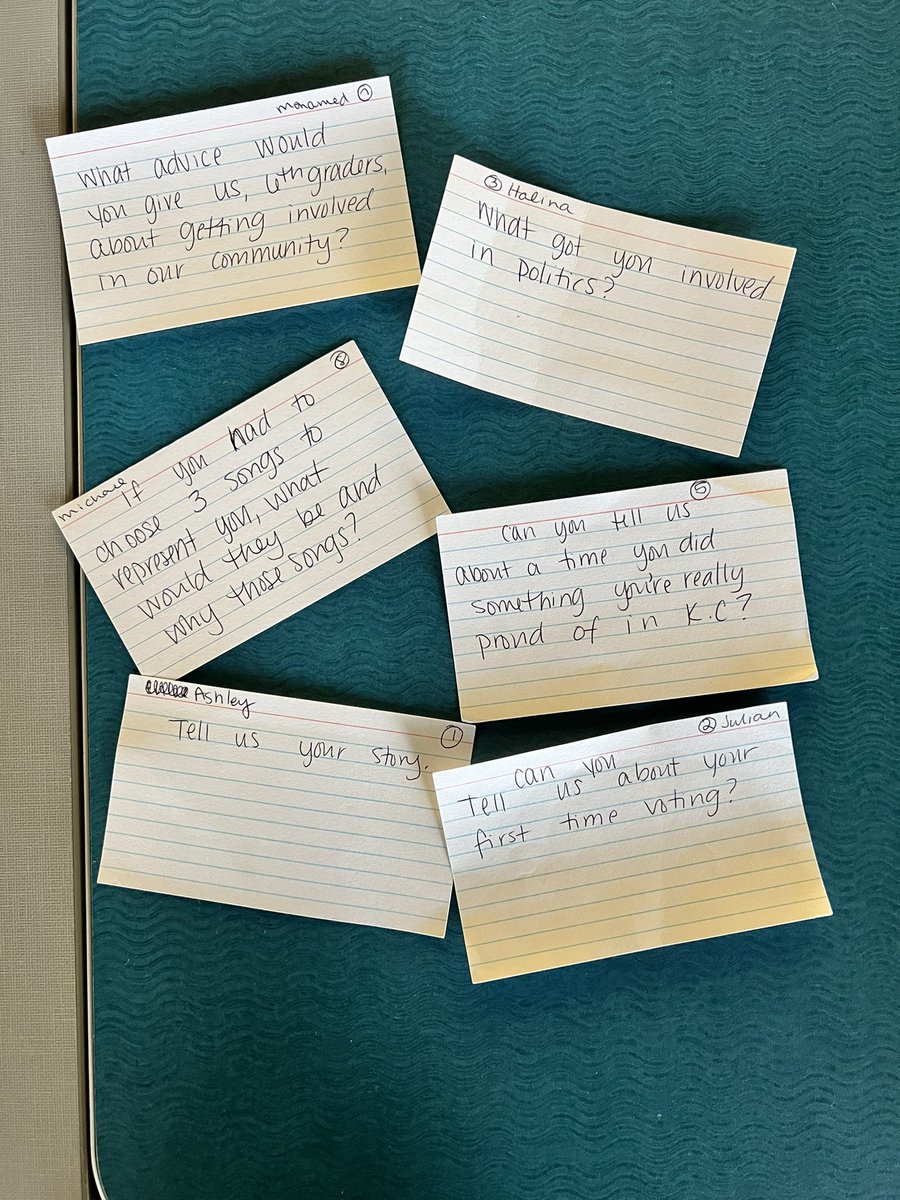 Mohamed ⑦
What advice would
you give us, 6th graders,
about getting involved
in our community?
③ Halina
What got you involved
in politics?
⑧
Michael
If you had to
choose 3 songs to
represent you, what
would they be and
why those songs?
⑤
Can you tell us
about a time you did
something you're really
proud of in K.C?
Ashley
①
Tell us your story.
② Julian
Can you
Tell us about your
first time voting?